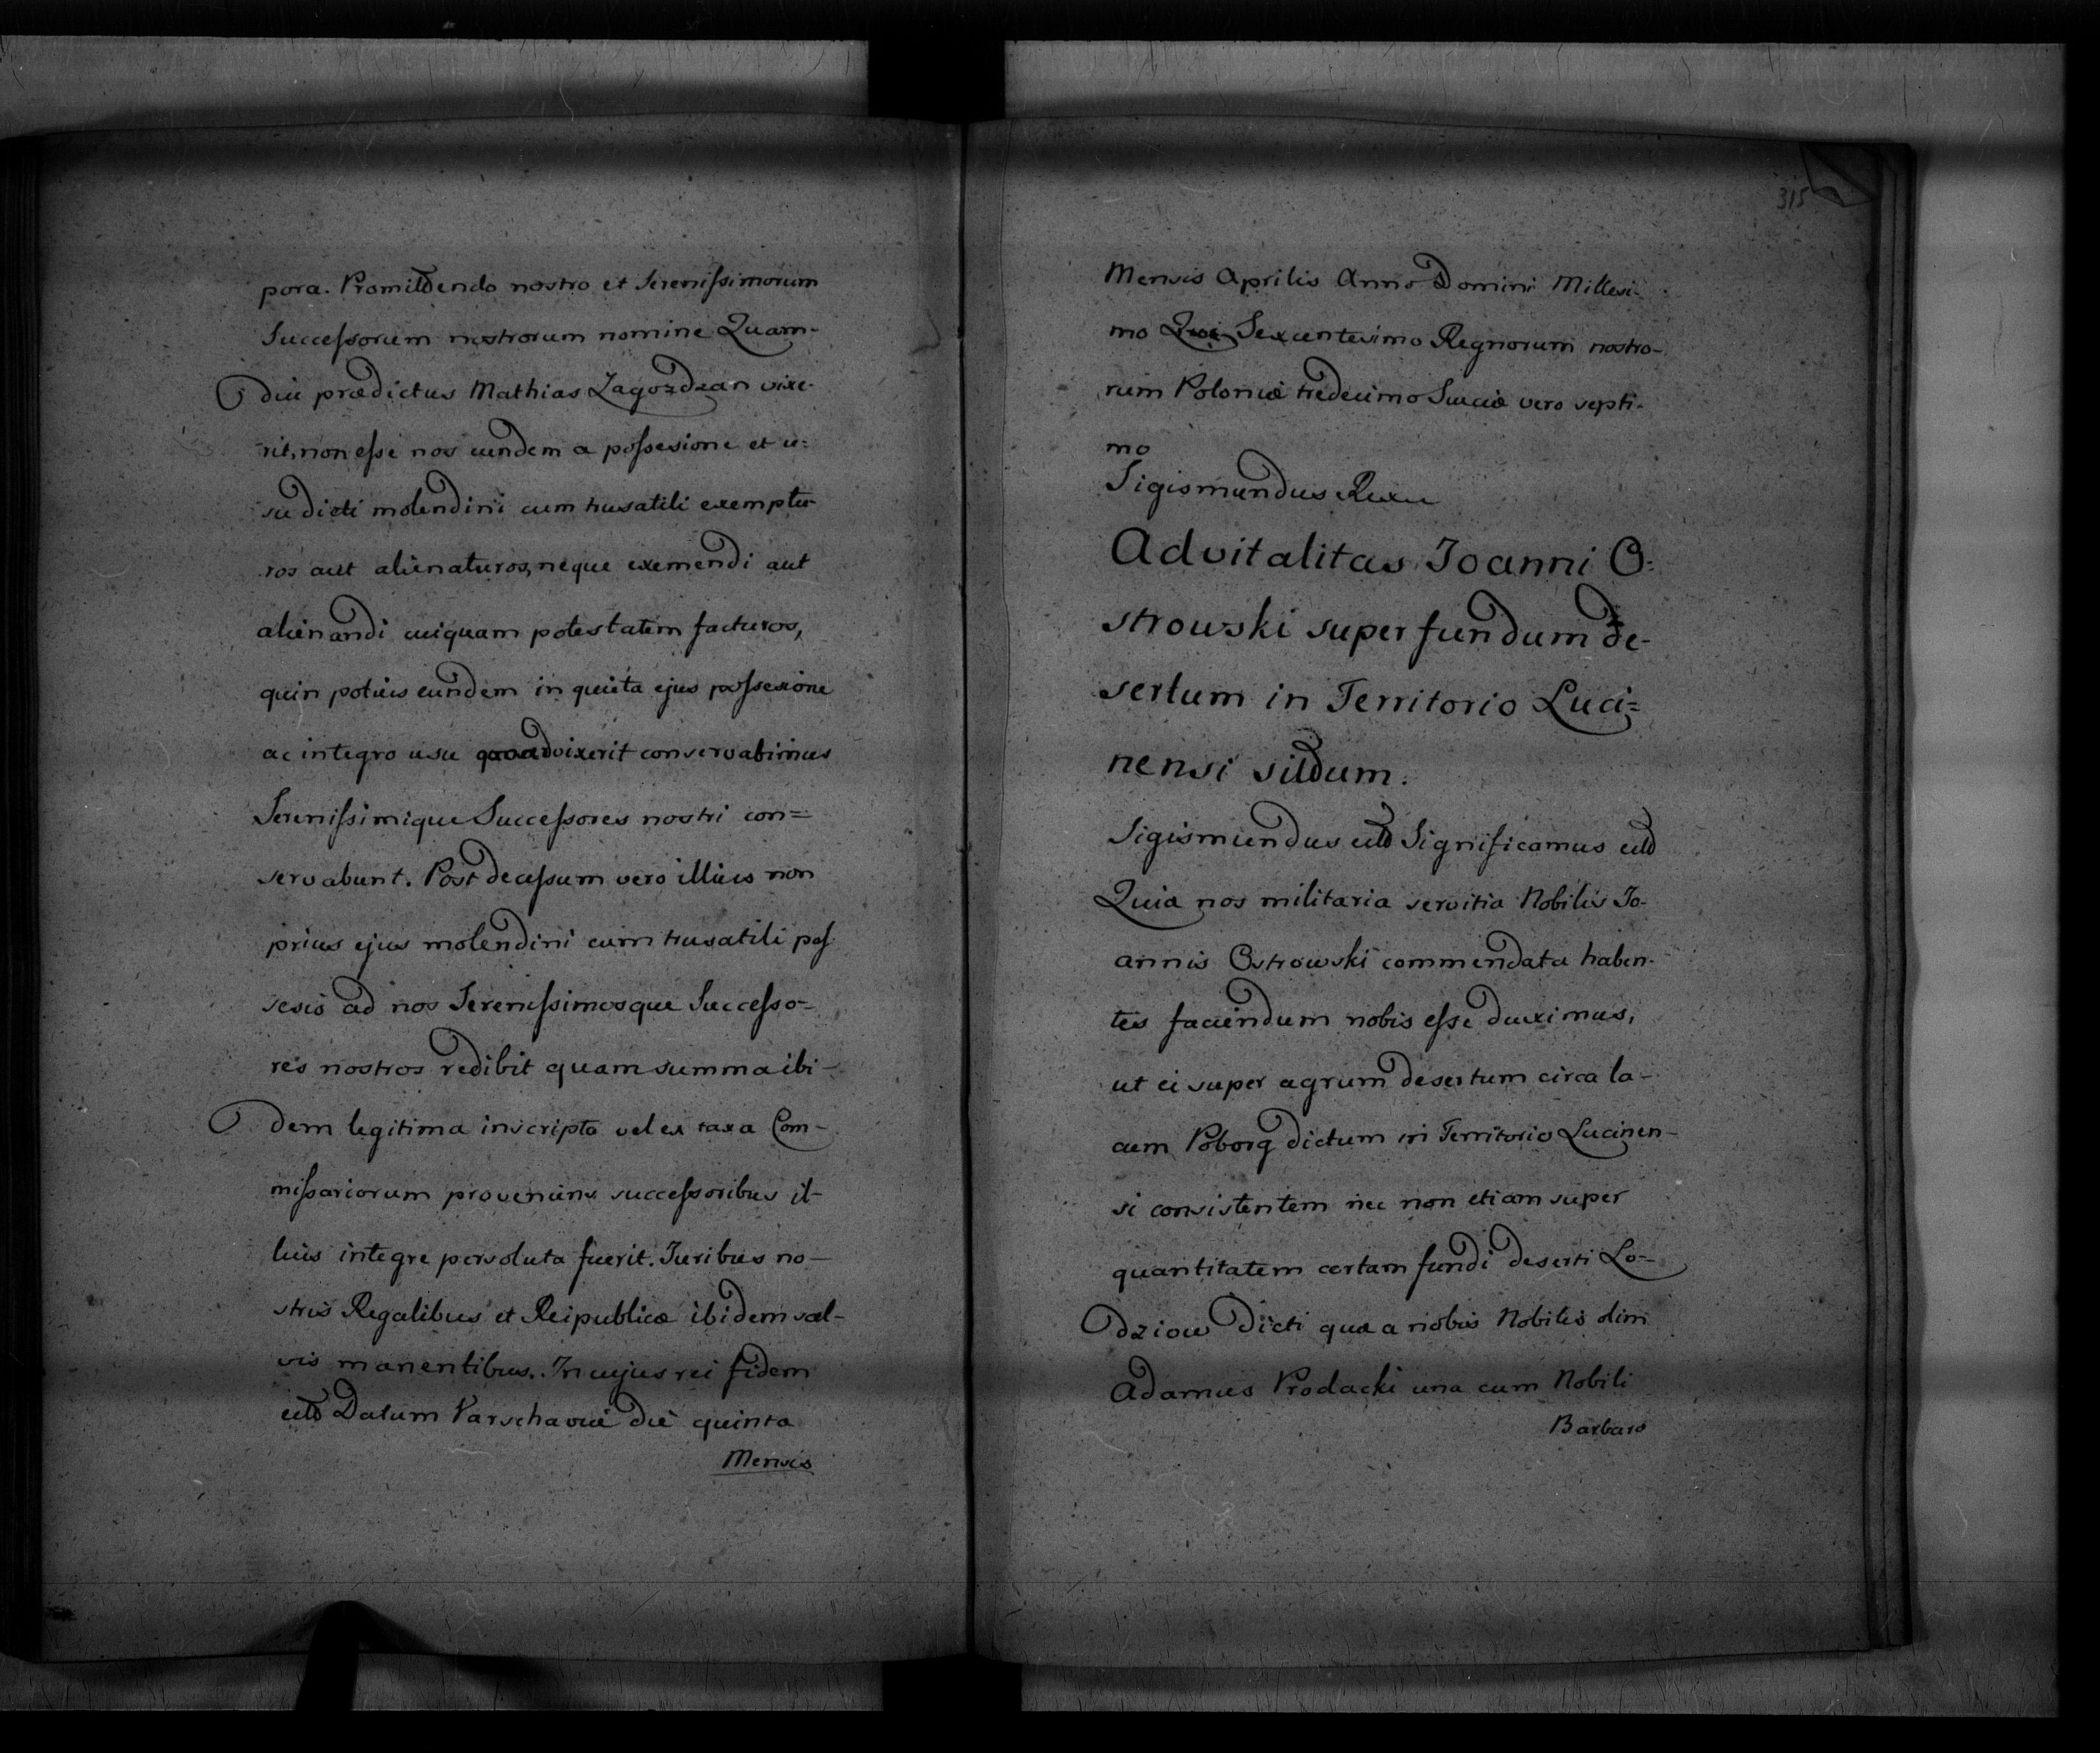 pora. Promittendo nostro et Serenissimorum
Successorum nostrorum nomine Quam-
diu prædictus Mathias Zagozdzan vixe-
rit, non esse nos eundem a possesione et u=
su dicti molendini cum trusatili exemptu-
ros aut alienaturos, neque eximendi aut
alienandi cuiquam potestatem facturos,
quin potius eundem in quieta ejus possesione
ac integro usu quoad vixerit conservabimus
Serenissimique Successores nostri con=
servabunt. Post decessum vero illius non
prius ejus molendini cum trusatili pos
sesio ad nos Serenissimosque Successo-
res nostros redibit quam summa ibi-
dem legitima inscripta vel ex taxa Com-
missariorum proveniens successoribus il-
lius integre persoluta fuerit. Juribus no-
stris Regalibus et Reipublicæ ibidem sal-
vis manentibus. In cujus rei fidem
etto Datum Varschaviæ die quinta
Mensis
315
Mensis Aprilis Anno Domini Millesi-
mo Sexcentesimo Regnorum nostro-
rum Poloniæ tredecimo Sueciæ vero septi-
mo
Sigismundus Rex
Advitalitas Joanni O=
strowski super fundum de-
sertum in Territorio Luci=
nensi situm.
Sigismundus ett Significamus ett
Quia nos militaria servitia Nobilis Jo-
annis Ostrowski commendata haben-
tes faciendum nobis esse duximus,
ut ei super agrum desertum circa la-
cum Poborg dictum in Territorio Lucinen-
si consistentem nec non etiam super
quantitatem certam fundi deserti Lo-
dziow dicti quæ a nobis Nobilis olim
Adamus Prodacki una cum Nobili
Barbara